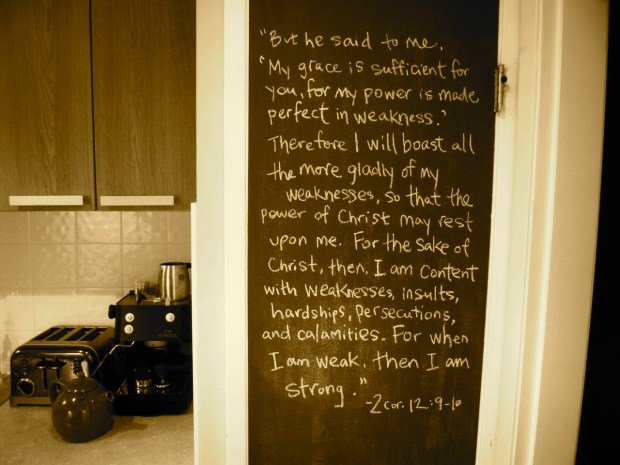 "But he said to me,
'My grace is sufficient for
you, for my power is made
perfect in weakness.'
Therefore I will boast all
the more gladly of my
weaknesses, so that the
power of Christ may rest
upon me. For the sake of
Christ, then, I am content
with weaknesses, insults,
hardships, persecutions,
and calamities. For when
I am weak, then I am
strong."
-2 Cor. 12:9-10